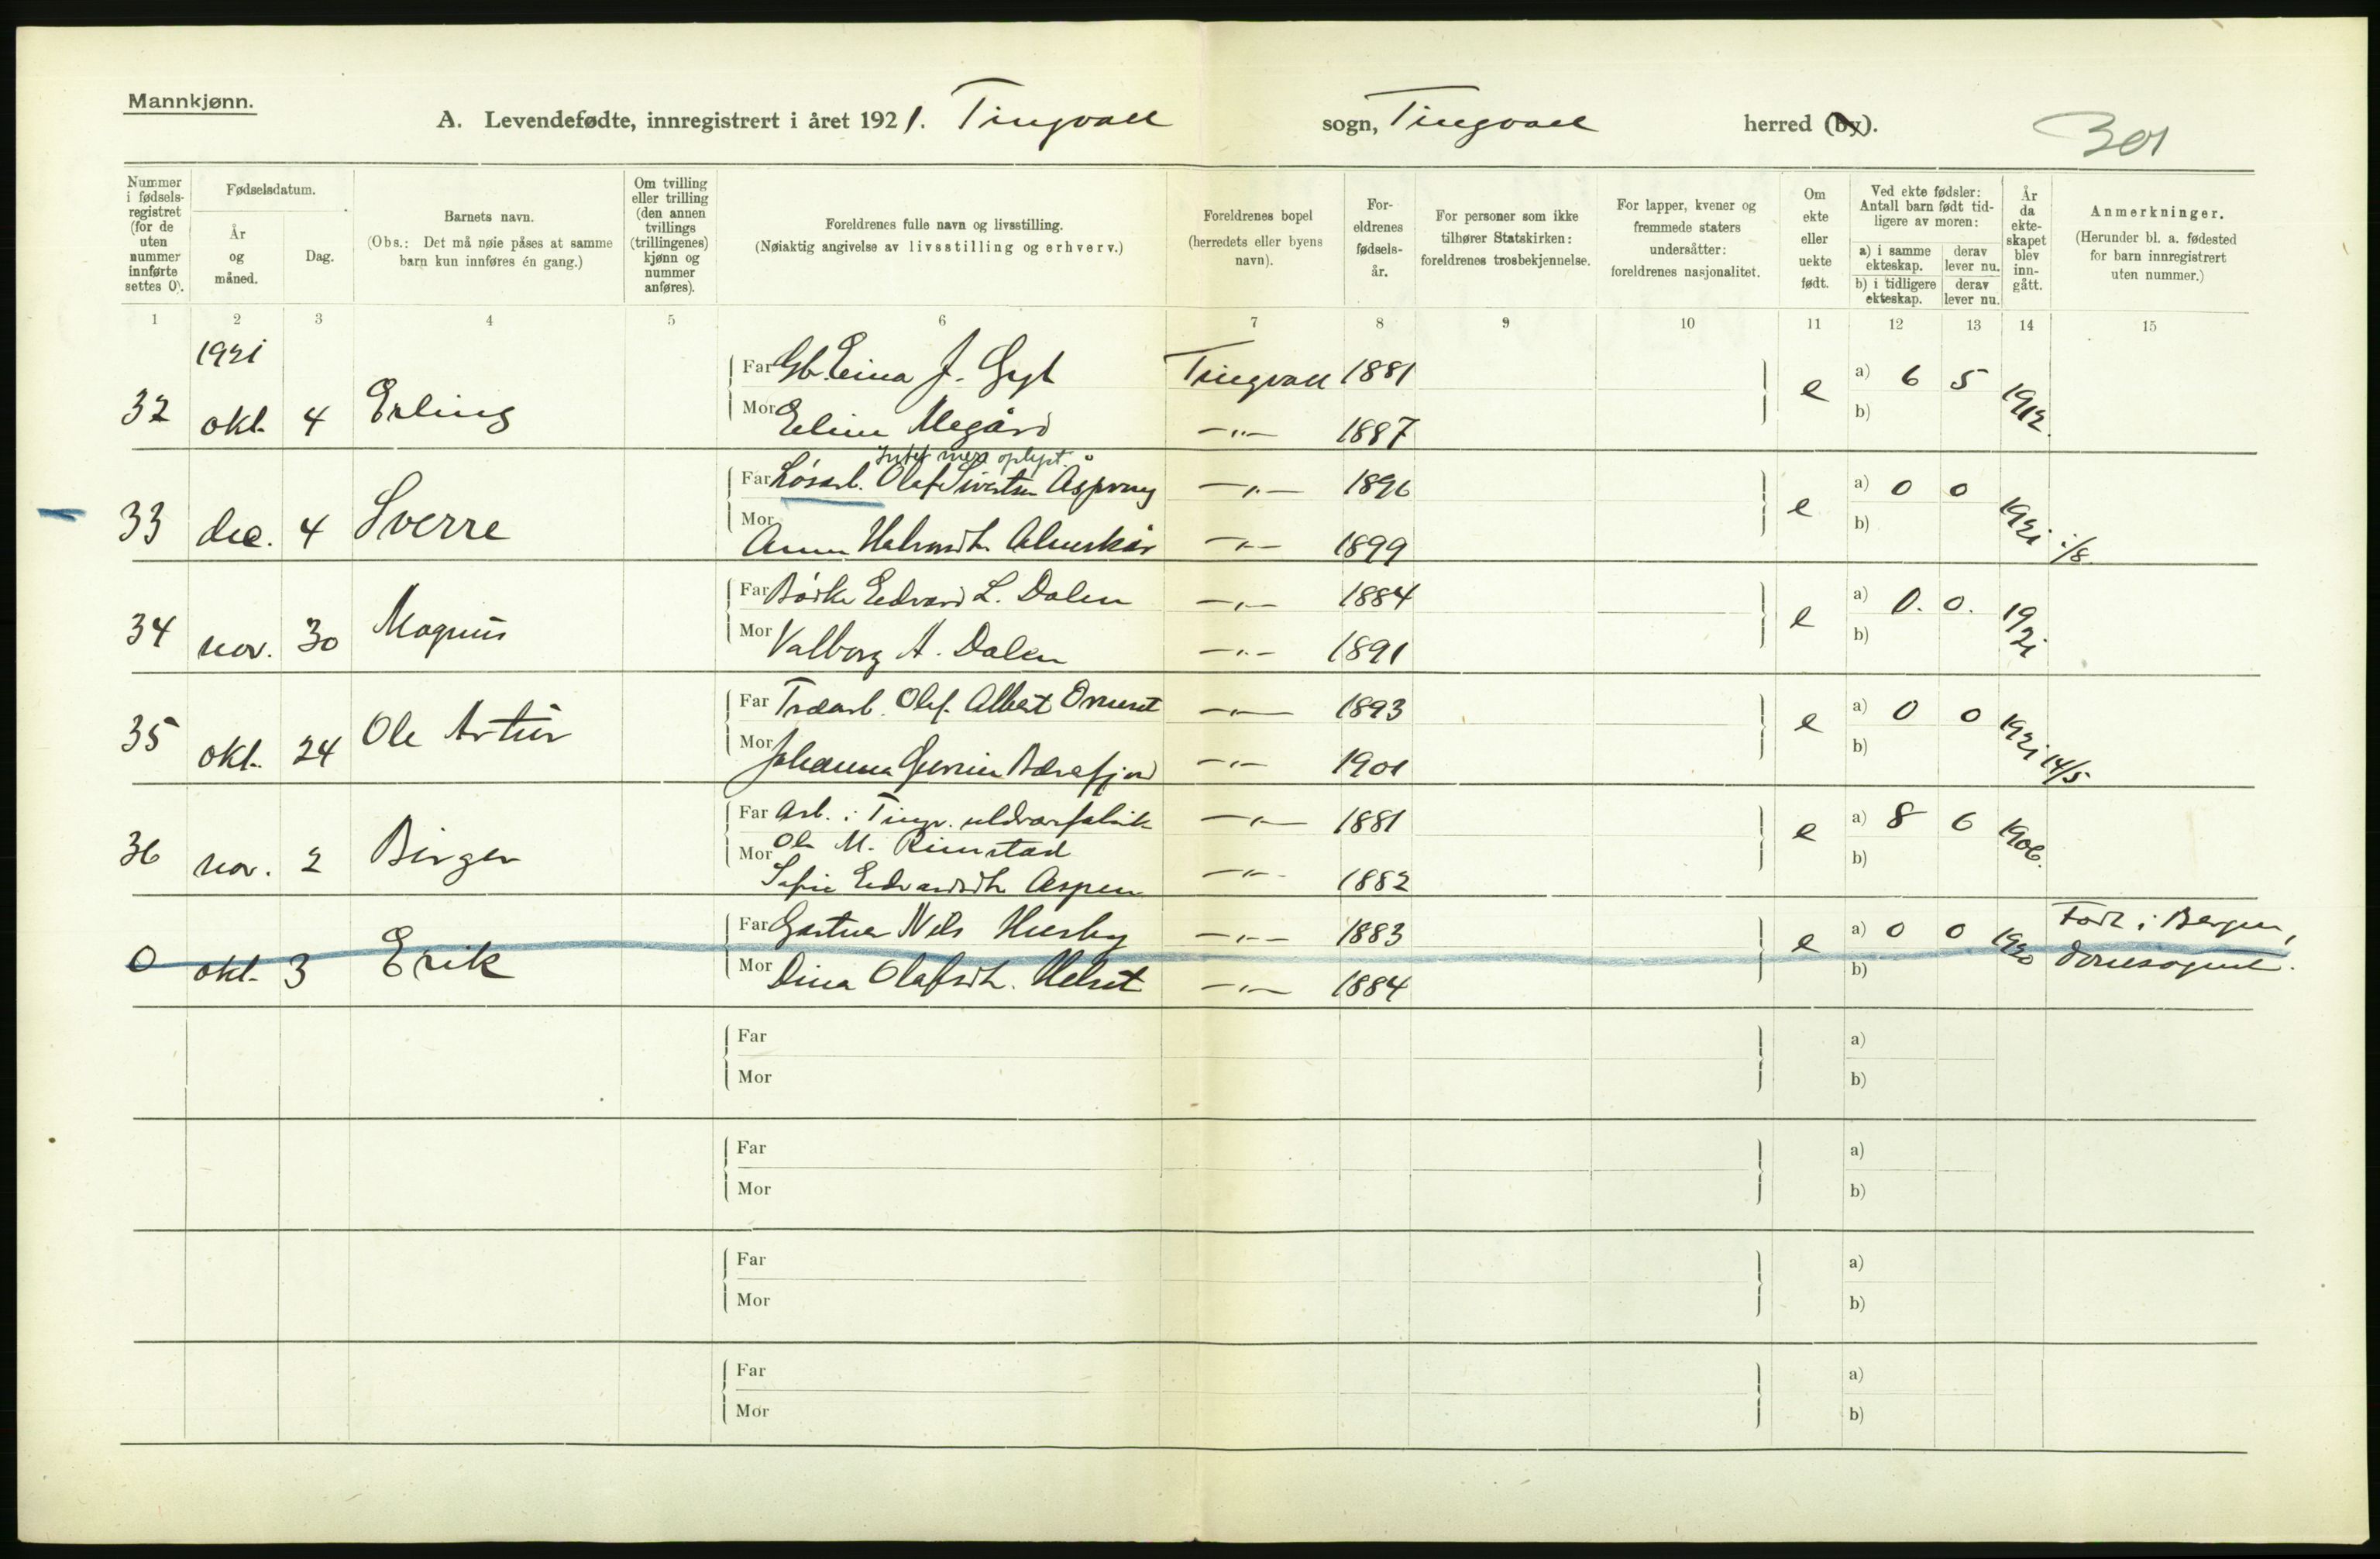 Mannkjønn.
A. Levendefødte, innregistrert i året 1921. Tingvoll sogn, Tingvoll herred (by).
301
Nummer i fødselsregistret (for de uten nummer innførte settes 0).
Fødselsdatum.
År og måned.
Dag.
Barnets navn.
(Obs.: Det må nøie påses at samme barn kun innføres én gang.)
Om tvilling eller trilling (den annen tvillings (trillingenes) kjønn og nummer anføres).
Foreldrenes fulle navn og livsstilling.
(Nøiaktig angivelse av livsstilling og erhverv.)
Foreldrenes bopel (herredets eller byens navn).
Foreldrenes fødselsår.
For personer som ikke tilhører Statskirken: foreldrenes trosbekjennelse.
For lapper, kvener og fremmede staters undersåtter: foreldrenes nasjonalitet.
Om ekte eller uekte født.
Ved ekte fødsler: Antall barn født tidligere av moren:
a) i samme ekteskap. derav lever nu.
b) i tidligere ekteskap. derav lever nu.
År da ekteskapet blev inngått.
Anmerkninger.
(Herunder bl. a. fødested for barn innregistrert uten nummer.)
1 2 3 4 5 6 7 8 9 10 11 12 13 14 15
1921
32 okt. 4 Erling
Far Gb. J. Gyl Tingvoll 1881 e a) 6 5 1912.
Mor Megård —"— 1887 b)
Intet mer oplyst.
33 dec. 4 Sverre
Far Løsarb. Olaf Sivertsen —"— 1896 e a) 0 0 1921
Mor Anna —"— 1899 b)
34 nov. 30 Magnus
Far Edvard L. Dalen —"— 1884 e a) 0. 0. 1921
Mor Valborg A. Dalen —"— 1891 b)
35 okt. 24 Ole Artur
Far Olaf Albert —"— 1893 e a) 0 0 1921 14/5
Mor Johanna —"— 1901 b)
36 nov. 2 Birger
Far Arb. i Tingv. uldvarefabrik —"— 1881 e a) 8 6 1906.
Ole M. Rimstad
Mor Sofie Edvardsdtr. Aspen —"— 1882 b)
0 okt. 3 Erik
Far Gartner Nils Husby —"— 1883 e a) 0 0 1920 Født i Bergen,
Mor Dina Olafsdtr. Helset —"— 1884 b) Domesognet.
Far a)
Mor b)
Far a)
Mor b)
Far a)
Mor b)
Far a)
Mor b)